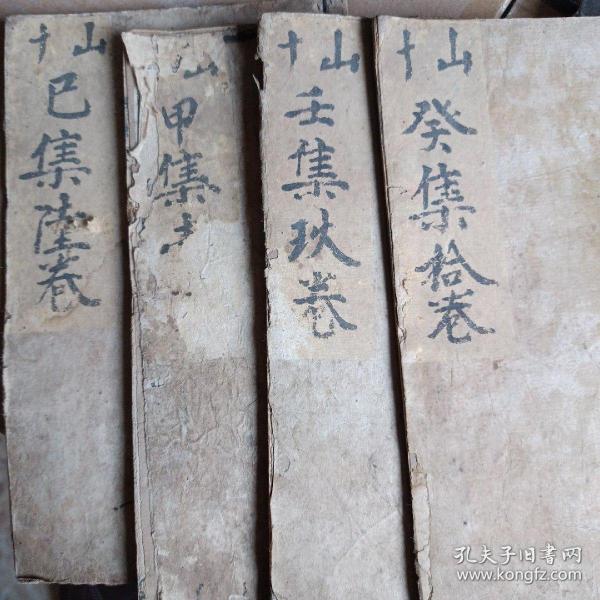 十山
巳集陸卷
山
甲集
十山
壬集玖卷
十山
癸集拾卷
孔夫子旧书网
www.kongfz.com